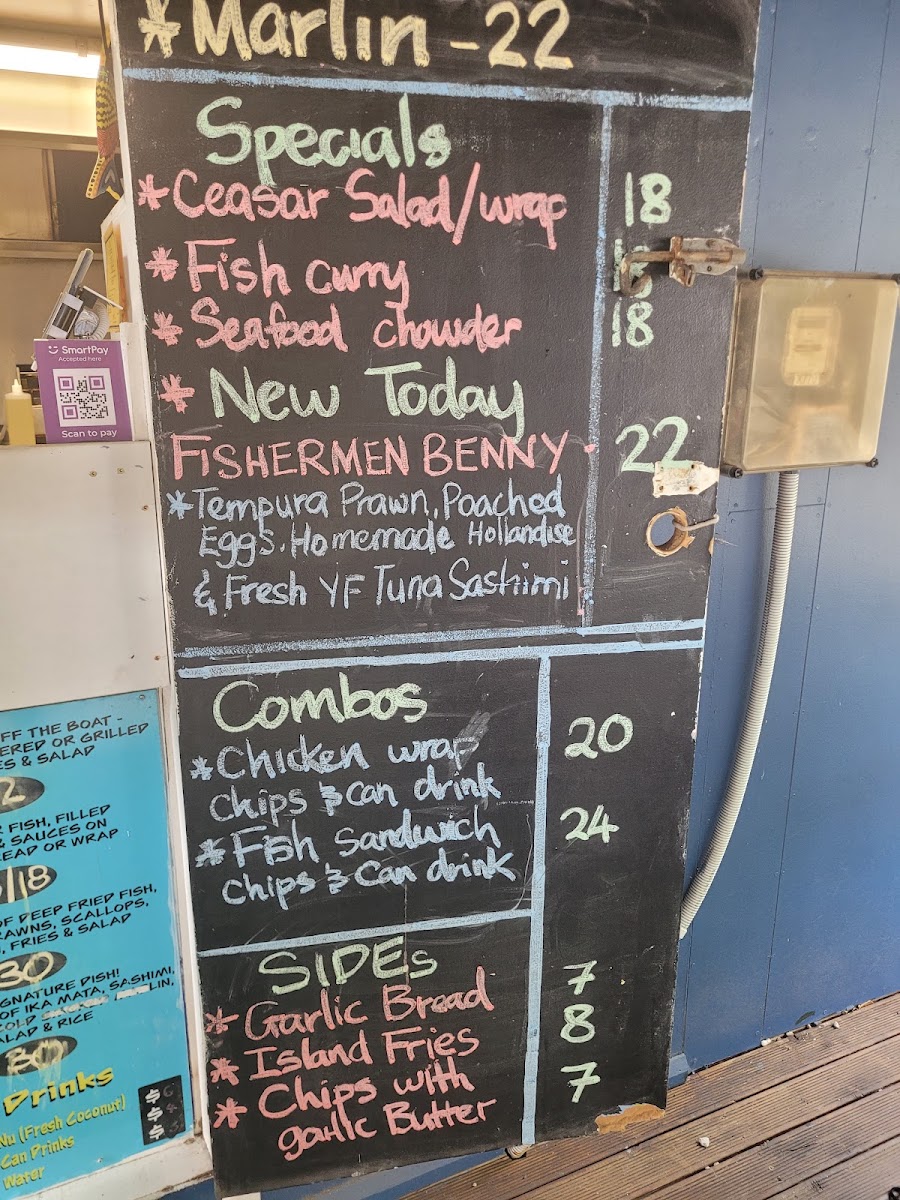 *Marlin - 22
Specials
*Ceasar Salad/wrap 18
*Fish curry
*Seafood chowder 18
*New Today
FISHERMEN BENNY - 22
*Tempura Prawn, Poached
Eggs, Homemade Hollandise
& Fresh YF Tuna Sashimi
Combos
*Chicken wrap 20
chips & can drink
*Fish Sandwich 24
chips & Can drink
SIDEs
*Garlic Bread 7
*Island Fries 8
*Chips with 7
garlic Butter
SmartPay
Accepted here
Scan to pay
FF THE BOAT -
ERED OR GRILLED
ES & SALAD
2
R FISH, FILLED
& SAUCES ON
EAD OR WRAP
/18
OF DEEP FRIED FISH,
RAWNS, SCALLOPS,
, FRIES & SALAD
30
GNATURE DISH!
OF IKA MATA, SASHIMI,
OLD
SALAD & RICE
30
Drinks
Nu (Fresh Coconut)
Can Drinks
Water